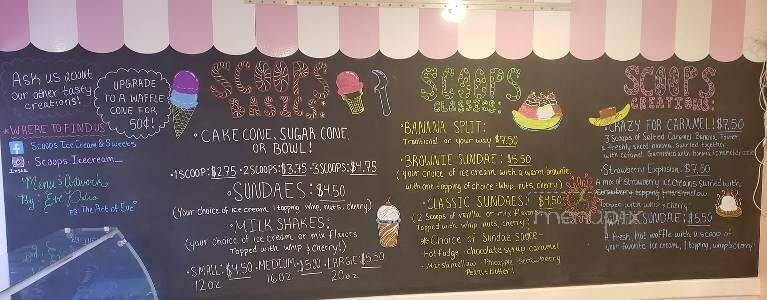 Ask us about
our other tasty
creations!
UPGRADE
TO A WAFFLE
CONE FOR
50¢!
*WHERE TO FIND US
Scoops Ice Cream & Sweets
Scoops Icecream
Menu's Artwork
By: Eve
FB: The Art of Eve
SCOOPS
BASICS:
• CAKE CONE, SUGAR CONE,
OR BOWL!
• 1 SCOOP: $2.75 • 2 SCOOPS: $3.75 • 3 SCOOPS: $4.75
• SUNDAES: $4.50
(Your choice of ice cream, 1 topping, whip, nuts, cherry!)
• MILK SHAKES:
(your choice of ice cream or mix flavors
Topped with whip & cherry!)
• SMALL: $4.50 • MEDIUM: $5.00 • LARGE: $5.50
12oz 16oz. 20oz.
SCOOPS
CLASSICS:
• BANANA SPLIT:
Traditional or your way $7.50
• BROWNIE SUNDAE: $5.50
(your choice of ice cream with a warm brownie,
with one topping of choice, whip, nuts, cherry)
• CLASSIC SUNDAES: $4.50
(2 Scoops of vanilla or mix flavor
Topped with whip, nuts, cherry)
* Choice of Sundae Sauce -
Hot Fudge - chocolate syrup - caramel
- Marshmallow - Pineapple - Strawberry
Peanut butter!
SCOOPS
CREATIONS:
• CRAZY FOR CARAMEL! $7.50
3 Scoops of Salted Caramel
freshly sliced banana, swirled together
with caramel.
• Strawberry Explosion: $7.50
A mix of strawberry ice creams swirled with
Strawberry topping
Topped with whip & cherry
SUNDAE: $5.50
A fresh, hot waffle with a scoop of
your favorite ice cream, 1 topping, whip & cherry!
menupix